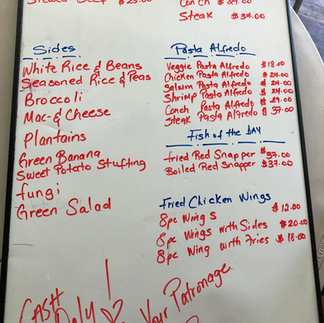 Stewed Beef $25.00
Conch $29.00
Steak $34.00
Sides
White Rice & Beans
Seasoned Rice & Peas
Broccoli
Mac & Cheese
Plantains
Green Banana
Sweet Potato Stuffing
fungi
Green Salad
Pasta Alfredo
Veggie Pasta Alfredo $18.00
Chicken Pasta Alfredo $24.00
Salum Pasta Alfredo $24.00
Shrimp Pasta Alfredo $24.00
Conch Pasta Alfredo $29.00
Steak Pasta Alfredo $37.00
Fish of the DAY
fried Red Snapper $37.00
Boiled Red Snapper $37.00
Fried Chicken Wings
8pc Wings $12.00
8pc Wings with Sides $20.00
8pc Wing with Fries $18.00
CASH Only!
Your Patronage